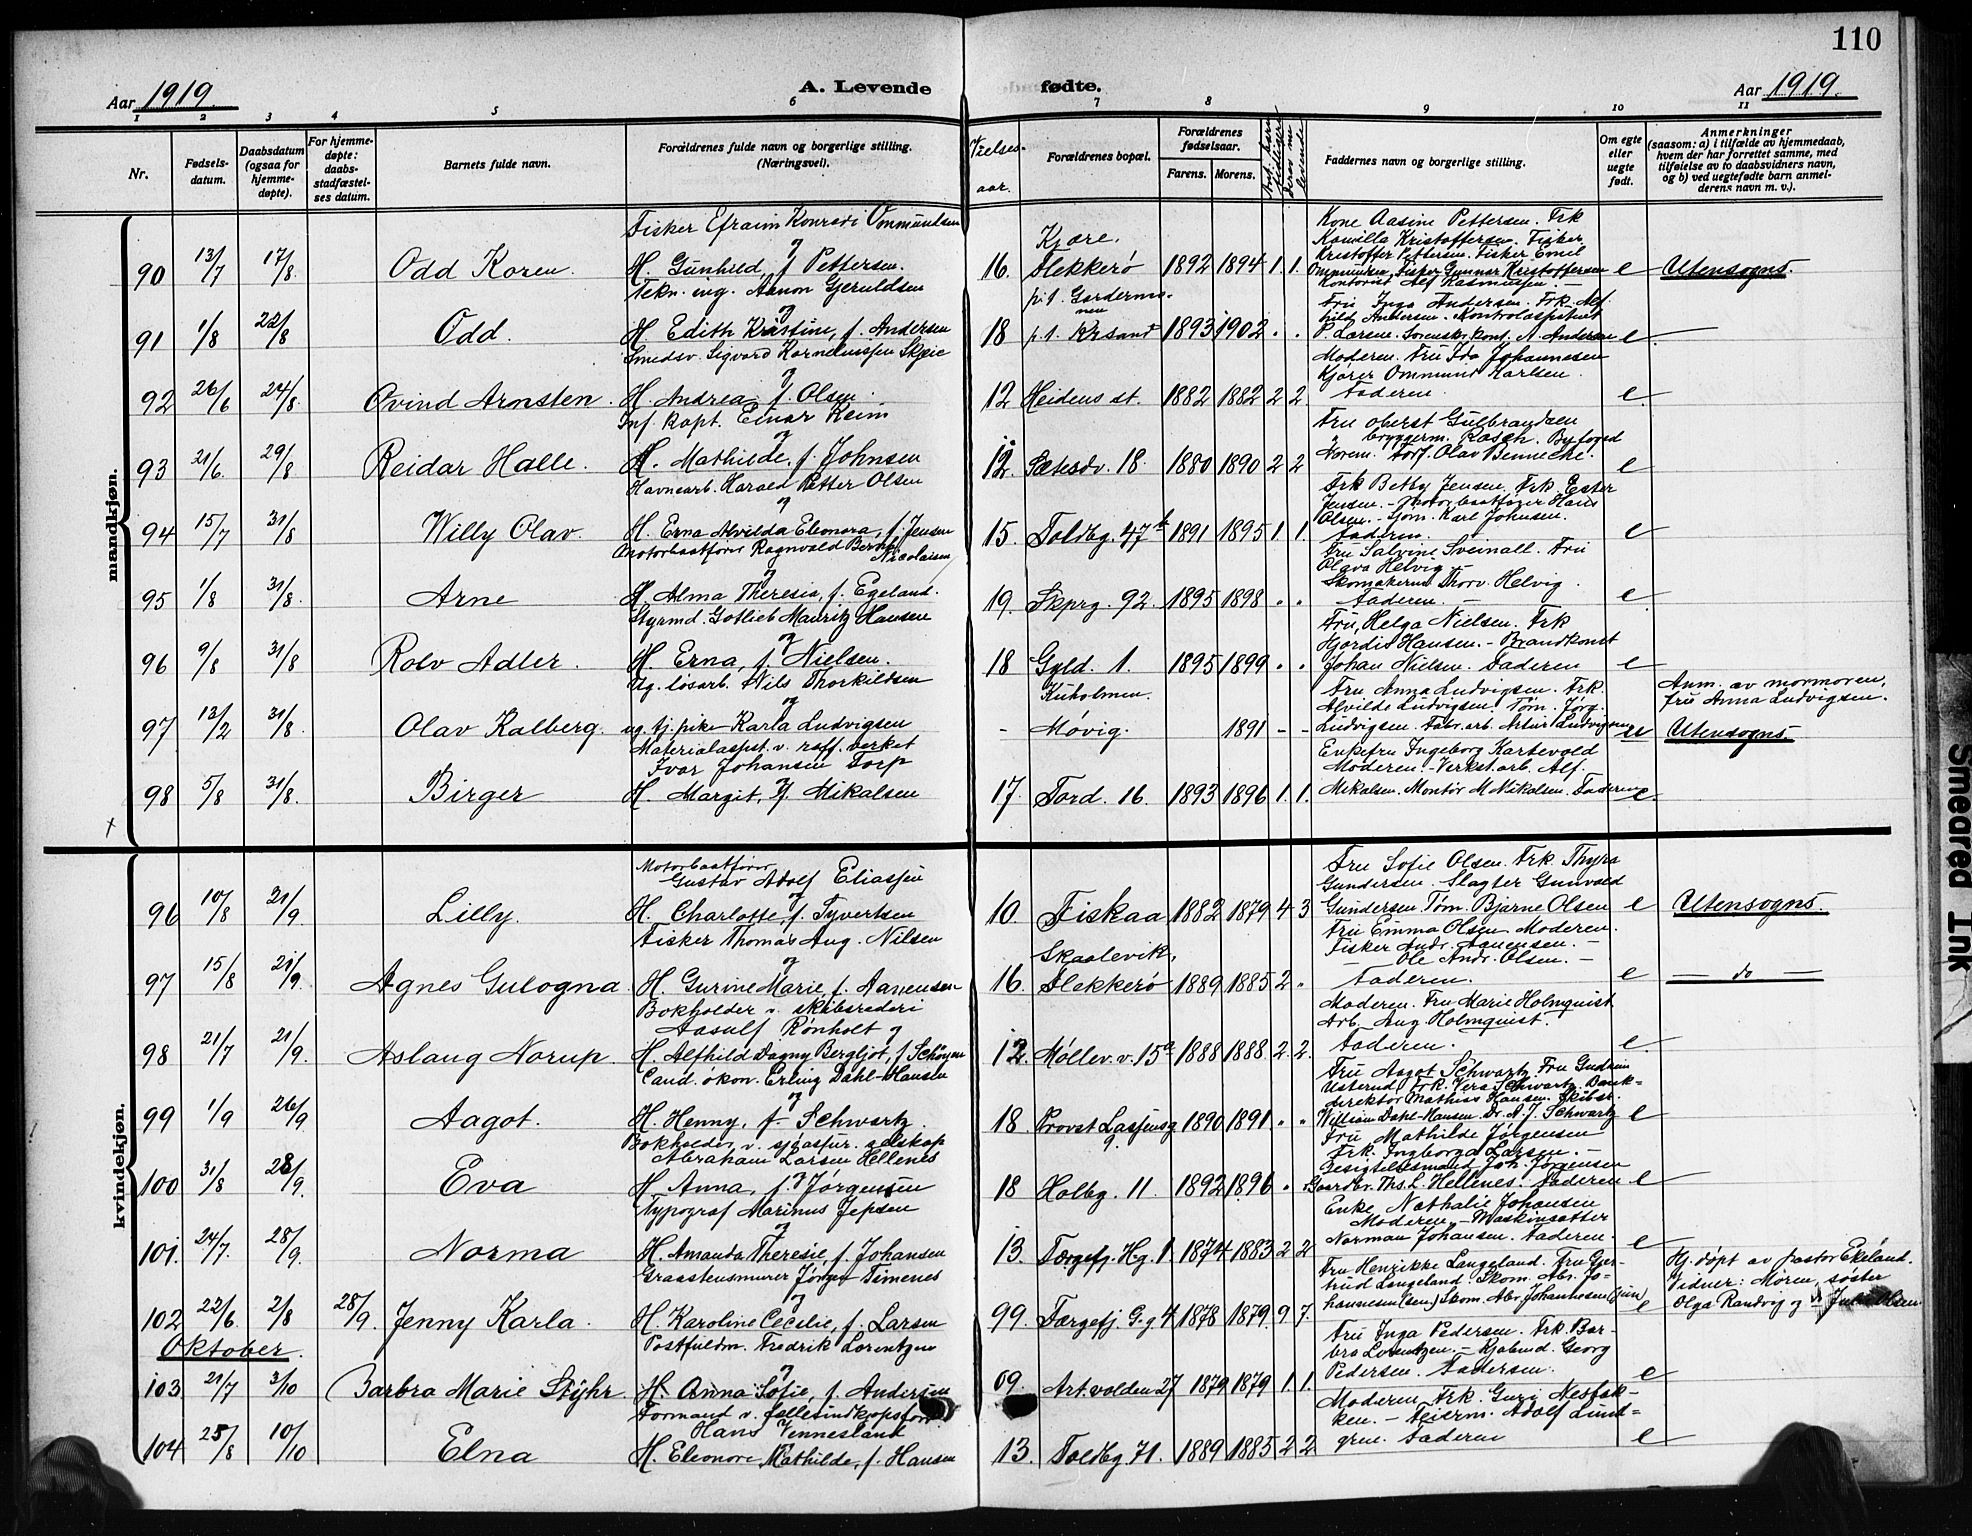 110
Aar 1919.
A. Levende fødte.
Aar 1919.
1 2 3 4 5 6 7 8 9 10 11
Nr.
Fødsels-datum.
Daabsdatum (ogsaa for hjemme-døpte).
For hjemme-døpte: daabs-stadfæstel-ses datum.
Barnets fulde navn.
Forældrenes fulde navn og borgerlige stilling. (Næringsvei).
Vielses-aar.
Forældrenes bopæl.
Forældrenes fødselsaar.
Farens. Morens.
Faddernes navn og borgerlige stilling.
Om egte eller uegte født.
Anmerkninger
(saasom: a) i tilfælde av hjemmedaab, hvem der har forrettet samme, med tilføielse av to daabsvidners navn, og b) ved uegtefødte barn anmel-derens navn m. v.).
mandkjøn.
Fisker Efraim Konradi Ommundsen og
90 13/7 17/8 Odd Koren. H. Gunhild, f. Pettersen. 16. Kjære, Flekkerø 1892 1894 1 1.
Kone Aasine Pettersen. Frk
Kamilla Kristoffersen. Fisker
Kristoffer Pettersen. Fisker Emil
Ommundsen, Fisker Gunnar Kristoffersen
Kontorist Alf Rasmussen. —
e Utensogns.
Tekn. eng. Aanon Gjeruldsen og
91 1/8 22/8 Odd. H. Edith Kristine, f. Andersen 18 p.t. Gardermo-nen p.t. Krsand 1893 1902 . .
Fru Inga Andersen. Frk. Alf-
hild Andersen. Kontrolassistent
P. Larsen. Sorenskr.kont. A. Andersen
e
Smedsv. Sigvard Kornelinssen Skjeie og
92 26/6 24/8 Øvind Arnsten. H. Andrea f. Olsen 12 Heidens st. 1882 1882 2 2
Moderen. Fru Ida Johannesen
Kjører Ommund Karlsen.
Faderen.
e
Inf. kapt. Einar Keim og
93 21/6 29/8 Reidar Halle. H. Mathilde, f. Johnsen 12. Sætesdv. 18. 1880 1890 2 2
Fru oberst Gulbrandsen
" bryggerm. Rasch. Byfoged
Olav Bennecke.
e
Havnearb. Harald Petter Olsen og
94 15/7 31/8 Willy Olav. H. Erna Alvilda Eleonora, f. Jensen 15. Toldbg. 47 b 1891 1895 1 1.
Frk Betty Jensen, Frk. Ester
Jensen. - Motorbaatfører Hans
Olsen. - Tøm. Karl Johnsen.
Faderen.
e
Motorbaatfører Ragnvald Nicolaisen og
95 1/8 31/8. Arne H. Alma Theresia, f. Egeland. 19. Skprg. 92. 1895 1898 . .
Fru Salvine Sveinall. Fru
Olava Helvig —
Skomakerm Thorv. Helvig.
Faderen. —
e
Styrmd. Gotlieb Mauritz Hansen og
96 9/8 31/8 Rolv Adler. H. Erna, f. Nielsen. 18 Gyld. 1. 1895 1899 . .
Fru, Helga Nielsen. Frk
Hjørdis Hansen. - Brandkonst
Johan Nielsen. Faderen
e
Ug. løsarb. Nils Thorkildsen og
97 13/2 31/8. Olav Kalberg. ug. tj. pike Karla Ludvigsen - Kuholmen. Møvig. 1891 - -
Fru Anna Ludvigsen. Frk.
Alvilde Ludvigsen. Tøm. Jørg.
Ludvigsen. Fabr. arb. Artur Ludvigsen
ue
Anm. av mormoren, fru Anna Ludvigsen.
Utensogns.
Materialasst. v. raff. verket
Ivar Johansen Torp og
98 5/8 31/8. Birger H. Margit, f. Mikalsen 17. Tord. 16. 1893 1896 1. 1.
Enkefru Ingeborg Kartevold
Moderen. - Verkst. arb. Alf.
Mikalsen. Montør M Mikalsen. Faderen
e.
kvindekjøn.
Motorbaatfører Gustav Adolf Eliassen og
96 10/8 21/9 Lilly. H. Charlotte, f. Syvertsen 10. Fiskaa 1882 1879 4 3
Fru Sofie Olsen. Frk. Thyra
Gundersen. Slagter Gunvald
Gundersen Tøm. Bjarne Olsen
e Utensogns.
Fisker Thomas Aug. Nilsen og
97 15/8 21/9. Agnes Gulogna H. Gurine Marie f. Aanensen 16. Skaalevik, Flekkerø 1889 1885 2 .
Fru Emma Olsen Moderen.
Fisker Andr. Aanensen. —
— Ole Andr. Olsen. —
Faderen.
e — do —
Bokholder v. skibsrederi
Aasulf Rønholt og
98 21/7 21/9. Aslaug Norup. H. Alfhild Dagny Bergljot, f. Schøyen 12. Møllev. v. 15 a 1888 1888. 2 2.
Moderen. Fru Marie Holmquist.
Arb. Aug. Holmquist.
Faderen.
e
Cand. økon. Erling Dahl-Hansen og
99 1/9 26/9 Aagot. H. Henny, f. Schwartz. 18. Provst Lassens g 9. 1890 1891. . .
Fru Aagot Schwartz Fru Gudrun
Usterud Frk. Vera Schwartz. Bank-
direktør Mathias Hansen. Skibsr.
William Dahl-Hansen. Dr. A. J. Schwartz
e
Bokholder v. sjøassur. selskap
Abraham Larsen Hellenes og
100 31/8 28/9. Eva H Anna, f. Jørgensen 18 Holbg. 11. 1892 1896 . .
Fru Mathilde Jørgensen
Frk. Ingeborga Larsen. —
Besigtelsesmand Joh. Jørgensen
Gaardbr. Ths. L. Hellenes. Faderen
e
Typograf Marinus Jepsen og
101. 24/7. 28/9. Norma H. Amanda Theresie, f. Johansen 13. Færgefj. H.g. 1. 1874 1883 2 2
Enke Nathalie Johansen
Moderen - Maskinsætter
Norman Johansen. Faderen.
e
Graastensmurer Jørgen Timenes og
102 22/6. 2/8 28/9. Jenny Karla. H. Karoline Cecilie, f. Larsen 99. Færgefj. G.g 4 1878 1879. 9 7.
Fru Henrikke Langeland. Fru Ger-
trud Langeland. Skom. Abr. Jo-
hannesen (sen) Skom. Abr. Johannesen (jun)
e
Hj. døpt av pastor Ekeland.
Vidner: Moren, søster
Olga Randvig og
Oktober.
Postfuldm. Fredrik Lorentzen og
103 21/7 3/10 Barbra Marie Støhr H. Anna Sofie, f. Andersen 09. Art. volden 27 1879 1879 1. 1.
Fru Inga Pedersen. Frk. Bar-
bra Lorentzen. — Kjøbmd. Georg
Pedersen. Faderen.
e
Formand v. fællesindkjøpsfor.
Hans Vennesland
104 25/8 10/10 Elna H. Eleonore Mathilde, f. Hansen 13. Toldbg. 71. 1889 1885 2 2
Moderen, Frk. Guri Nesbak-
ken. — Feierm. Adolf Lund-
gren. Faderen
e
Smeared Ink